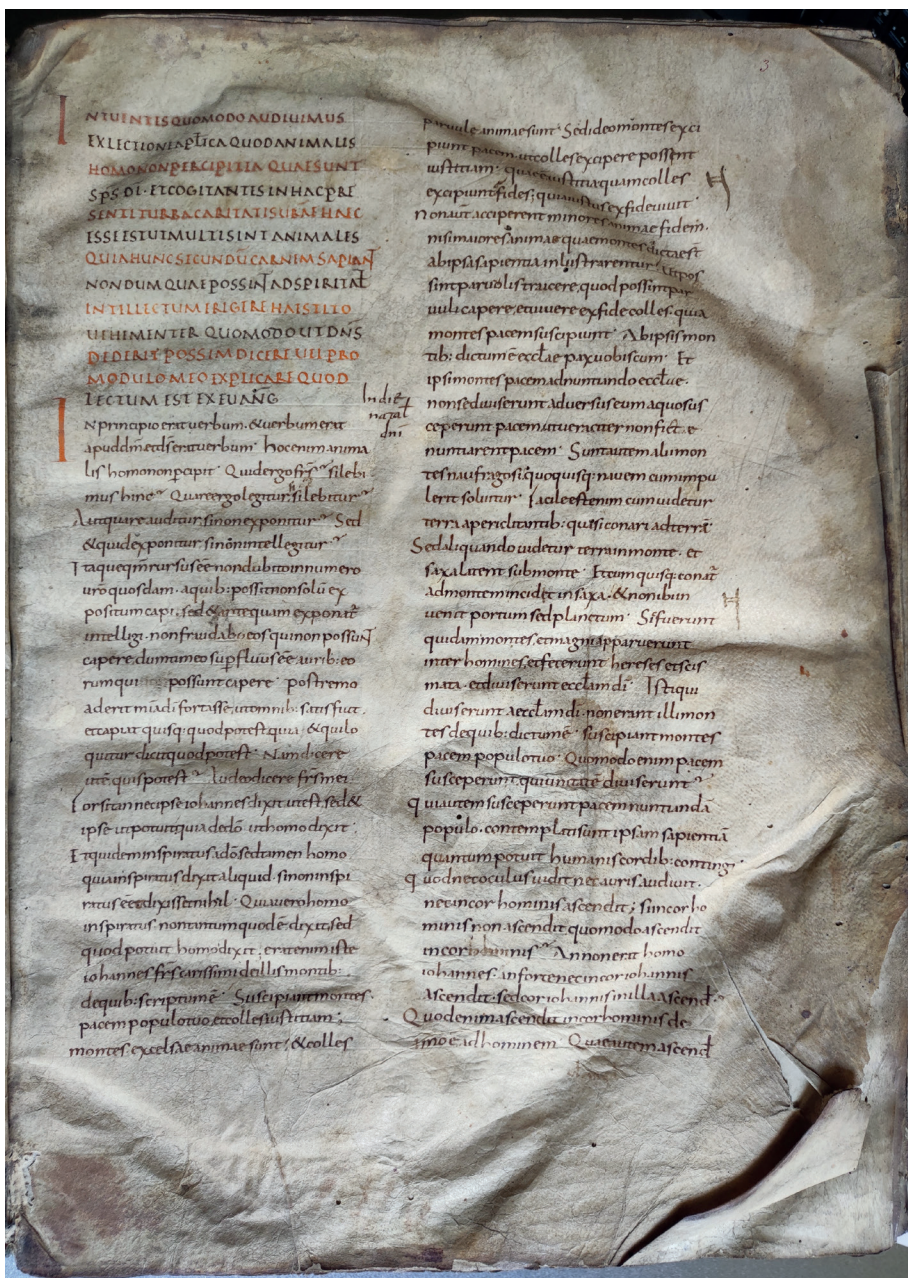 3
INTUENTES QUOMODO AUDIUIMUS
EX LECTIONE APL̄ICA QUOD ANIMALIS
HOMO NON PERCIPIT EA QUAE SUNT
SPS DI · ET COGITANTIS IN HAC PRE
SENTI TURBA CARITATIS URAE HAEC
ESSE EST UT MULTI SINT ANIMALES
QUI ADHUC SECUNDŪ CARNEM SAPIANT
NONDUM QUAE POSSINT AD SPIRITAL̄
INTELLECTUM ERIGERE HAESITO
UEHEMENTER QUOMODO UT DNS
DEDERIT POSSIM DICERE UEL PRO
MODULO MEO EXPLICARE QUOD
LECTUM EST EX EUANG̅
In die
natal̄
dn̄i
In principio erat uerbum · & uerbum erat
apud dm̄ et ds̄ erat uerbum · Hoc enim anima
lis homo non p̄cipit · Quid ergo frs̄ silebi
mus hinc · Quare ergo legitur si silebitur
Aut quare auditur si non exponitur · Sed
& quid exponitur si non intellegitur
Itaque qm̄ rursus eē non dubito in numero
uro quosdam · a quib: possit non solū ex
positum capi · sed & antequam exponat̄
intelligi · non fraudabo eos qui non possunt
capere dum timeo superfluus eē aurib: eo
rum qui possunt capere · postremo
aderit mīa di fortasse, ut omnib: satis fiat ·
et capiat quisq: quod potest quia & qui lo
quitur dicit quod potest · Nam dicere
ut ē quis potest · Audeo dicere frs̄ mei ·
Forsitan nec ipse iohannes dixit ut est, sed &
ipse ut potuit quia de dō ut homo dixit ·
Et quidem inspiratus a dō sed tamen homo
quia inspiratus dixit aliquid · si non inspi
ratus eēt dixisset nihil · Quia uero homo
inspiratus non totum quod ē dixit, sed
quod potuit homo dixit · erat enim iste
iohannes frs̄ carissimi de illis montib:
de quib: scriptum ē · Suscipiant montes
pacem populo tuo, et colles iustitiam ;
montes excelsae animae sunt ; & colles
paruule animae sunt · Sed ideo montes exci
piunt pacem, ut colles excipere possent
iustitiam · quae ē iustitia quam colles
excipiunt fides ; quia iustus ex fide uiuit
non aut̄ acciperent minores animae fidem ·
nisi maiores animae quae montes dictae st̄
ab ipsa sapientia inlustrarentur, ut pos
sint paruolis traicere, quod possint par
uuli capere, et uiuere ex fide colles, quia
montes pacem suscipiunt · Ab ipsis mon
tib: dictum ē eccl̄ae pax uobiscum · Et
ipsi montes pacem adnuntiando eccl̄iae ·
non se diuiserunt aduersus eum a quo sus
ceperunt pacem ut ueraciter non ficte
nuntiarent pacem · Sunt autem alii mon
tes naufragosi, quo quisq: nauem cum impu
lerit soluitur · facile est enim cum uidetur
terra a periclitantib: quasi conari ad terrā ·
Sed aliquando uidetur terra in monte · et
saxa latent sub monte · Et cum quisq: conat̄
ad montem incidet in saxa · & non ibi in
uenit portum sed planctum · Sic fuerunt
quidam montes, et magni apparuerunt
inter homines et fecerunt hereses et scis
mata · et diuiserunt eccl̄am di̅ · Isti qui
diuiserunt aeccl̄am di̅ · non erant illi mon
tes de quib: dictum ē · suscipiant montes
pacem populo tuo · Quomodo enim pacem
susceperunt, qui unitatē diuiserunt
Qui autem susceperunt pacem nuntiandā
populo · contemplati sunt ipsam sapientiā
quantum potuit humanis cordib: contingi ·
Quod nec oculus uidit nec auris audiuit ·
nec in cor hominis ascendit ; si in cor ho
minis non ascendit, quomodo ascendit
in cor iohannis · An non erat homo
iohannes · an forte nec in cor iohannis
ascendit · sed cor iohannis in illa ascend̄ ·
Quod enim ascendit in cor hominis de
imo ē ad hominem · Quae autem ascend̄